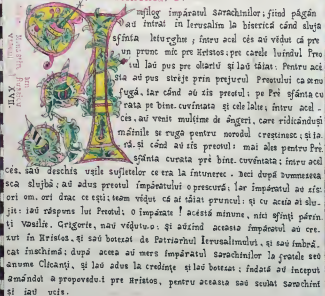 nțifilog împăratul sarachinilor; fiind păgân
au intrat în Ierusalim la biserică când slujia
sfânta leturghie; întru acel cés au vézut ca pre
un prunc mic pre Hristos; pre carele luândul Preo
tul lau pus pre oltariu și lau tăiat: Pentru acé
sta au pus străje prin prejurul Preotului ca să nu
fugă, iar când au zis preotul: pe Pré sfânta cu
rata pe bine. cuvintata și celelalte; întru acel.
cés. au venit mulțime de ângeri, care ridicânduși
mâinile se ruga pentru norodul creștinesc; și ia.
ră. și când au zis preotul: mai ales pentru Pré.
sfânta curată pré bine. cuvintata; întru acel
cés. sau deschis ușile sufletelor ce era la întunerec. Deci după dumnezeea
sca slujbă; au adus preotul împăratului o prescură; iar împăratul au zis:
ori om. ori drac ce ești; team vézut că ai tăiat pruncul; și cu aceia ai slu-
jit: iau răspuns lui Preotul: O împărate! acéstă minune, nici sfinții părin.
ți Vasilie, Grigorie, nau vézuto.o; și auzind aceasta împăratul au cre.
zut în Hristos, și sau botezat de Patriarhul Ierusalimului, și sau îmbră.
cat înschimă; după aceia au mers împăratul sarachinilor la fratele seu
anume Clicanți, și lau adus la credințe și lau botezat; îndată au început
amândoi a propovedui pre Hristos, pentru aceasta sau sculat sarachinii
și iau ucis.